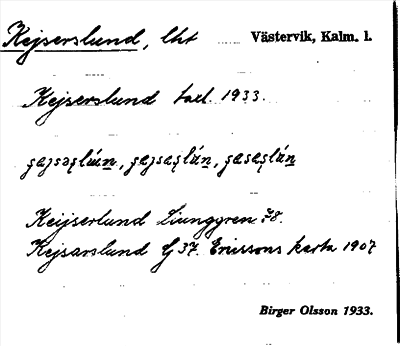 Kejserslund, lht Västervik, Kalm. l.
Kejserslund taxl. 1933.
Keijserlund Ljunggren 78.
Kejsarslund G 37. Ericssons karta 1907
Birger Olsson 1933.